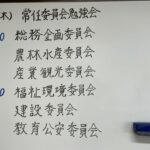 木) 常任委員会勉強会
総務企画委員会
農林水産委員会
産業観光委員会
福祉環境委員会
建設委員会
教育公安委員会